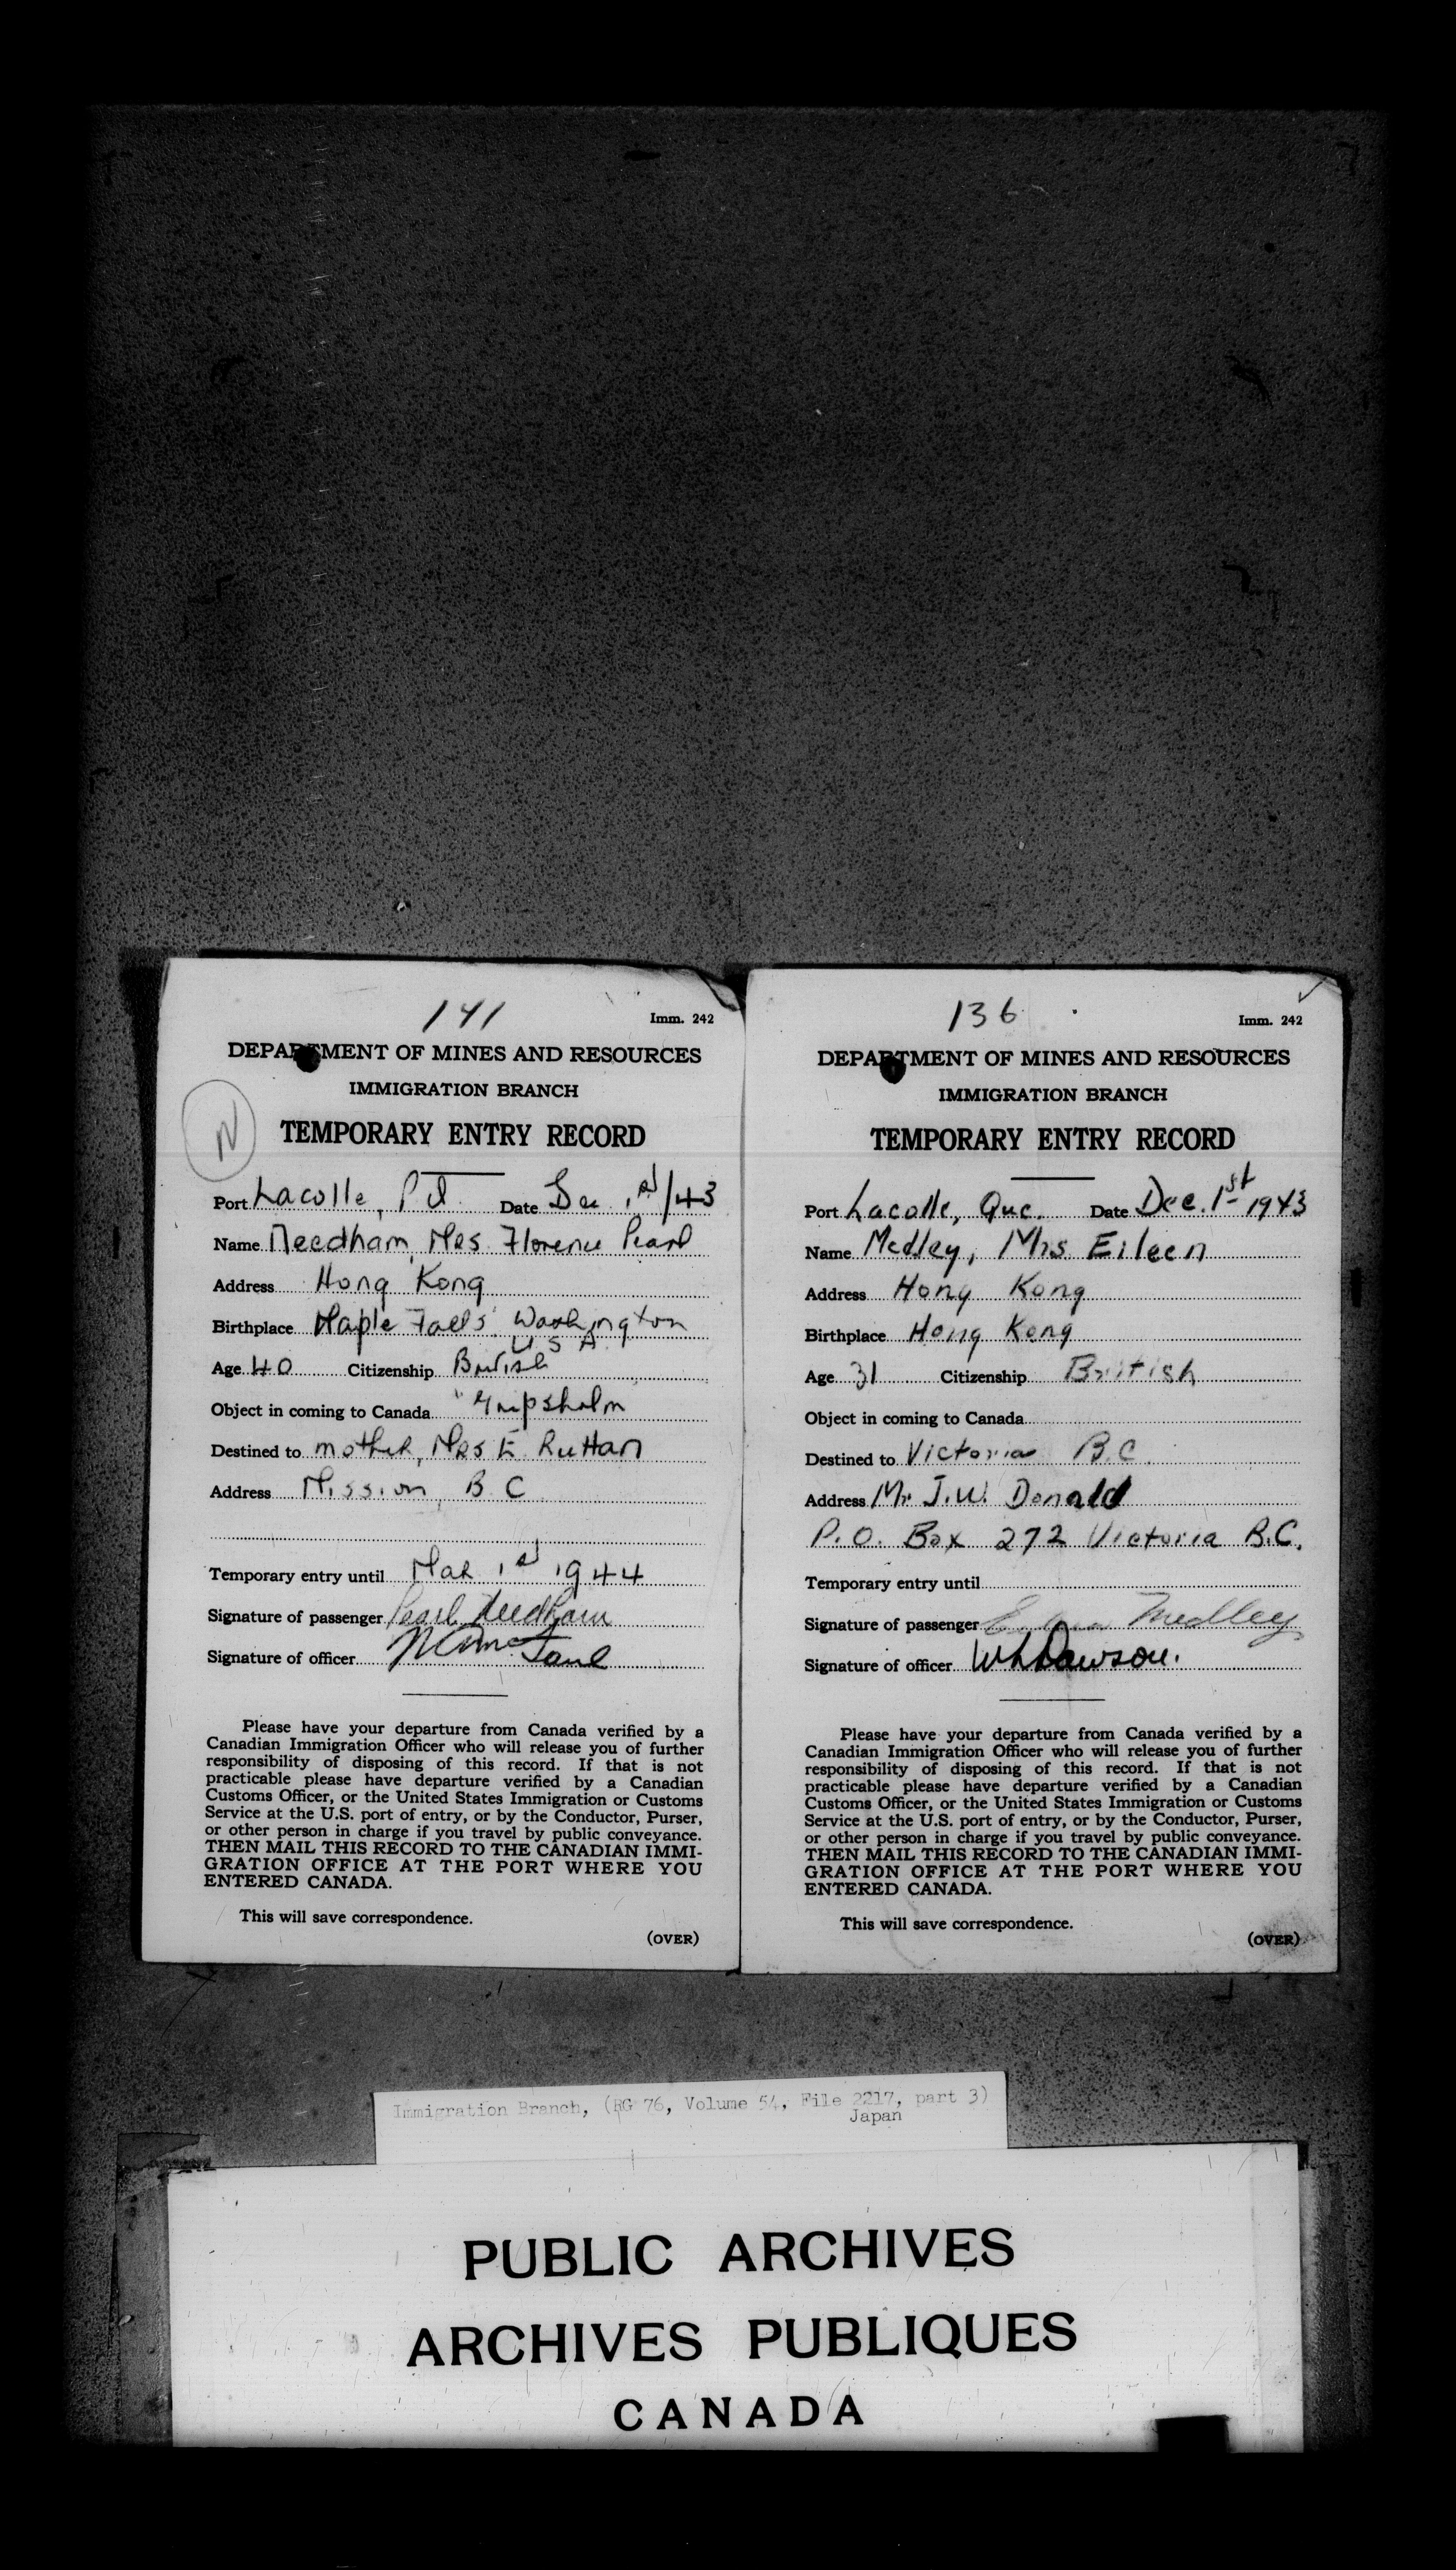 141
Imm. 242
DEPARTMENT OF MINES AND RESOURCES
IMMIGRATION BRANCH
N
TEMPORARY ENTRY RECORD
Port Lacolle, P.Q. Date Dec 1st/43
Name Needham, Mrs. Florence Pearl
Address Hong Kong
Birthplace Maple Falls, Washington
U S A.
Age 40 Citizenship British
Object in coming to Canada "Gripsholm
Destined to mother, Mrs E. Ruttan
Address Mission, B.C.
Temporary entry until Mar 1st 1944
Signature of passenger Pearl Needham
Signature of officer
Please have your departure from Canada verified by a
Canadian Immigration Officer who will release you of further
responsibility of disposing of this record. If that is not
practicable please have departure verified by a Canadian
Customs Officer, or the United States Immigration or Customs
Service at the U.S. port of entry, or by the Conductor, Purser,
or other person in charge if you travel by public conveyance.
THEN MAIL THIS RECORD TO THE CANADIAN IMMI-
GRATION OFFICE AT THE PORT WHERE YOU
ENTERED CANADA.
This will save correspondence.
(OVER)
136
Imm. 242
DEPARTMENT OF MINES AND RESOURCES
IMMIGRATION BRANCH
TEMPORARY ENTRY RECORD
Port Lacolle, Quc. Date Dec. 1st 1943
Name Medley, Mrs. Eileen
Address Hong Kong
Birthplace Hong Kong
Age 31 Citizenship British
Object in coming to Canada
Destined to Victoria B.C.
Address Mr. J.W. Donald
P.O. Box 272 Victoria B.C.
Temporary entry until
Signature of passenger Medley
Signature of officer WLDawson.
Please have your departure from Canada verified by a
Canadian Immigration Officer who will release you of further
responsibility of disposing of this record. If that is not
practicable please have departure verified by a Canadian
Customs Officer, or the United States Immigration or Customs
Service at the U.S. port of entry, or by the Conductor, Purser,
or other person in charge if you travel by public conveyance.
THEN MAIL THIS RECORD TO THE CANADIAN IMMI-
GRATION OFFICE AT THE PORT WHERE YOU
ENTERED CANADA.
This will save correspondence.
(OVER)
Immigration Branch, (RG 76, Volume 54, File 2217, part 3)
Japan
PUBLIC ARCHIVES
ARCHIVES PUBLIQUES
CANADA